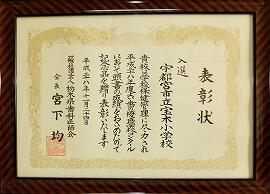 表彰状
入選
宇都宮市立宝木小学校
貴校は学校保健管理に尽力され
平成二八年度よい歯の学校コンクール
において頭書の成績をおさめたので
記念品を贈り表彰いたします
平成二八年十一月二十四日
一般社団法人 栃木県歯科医師会
会長 宮下均